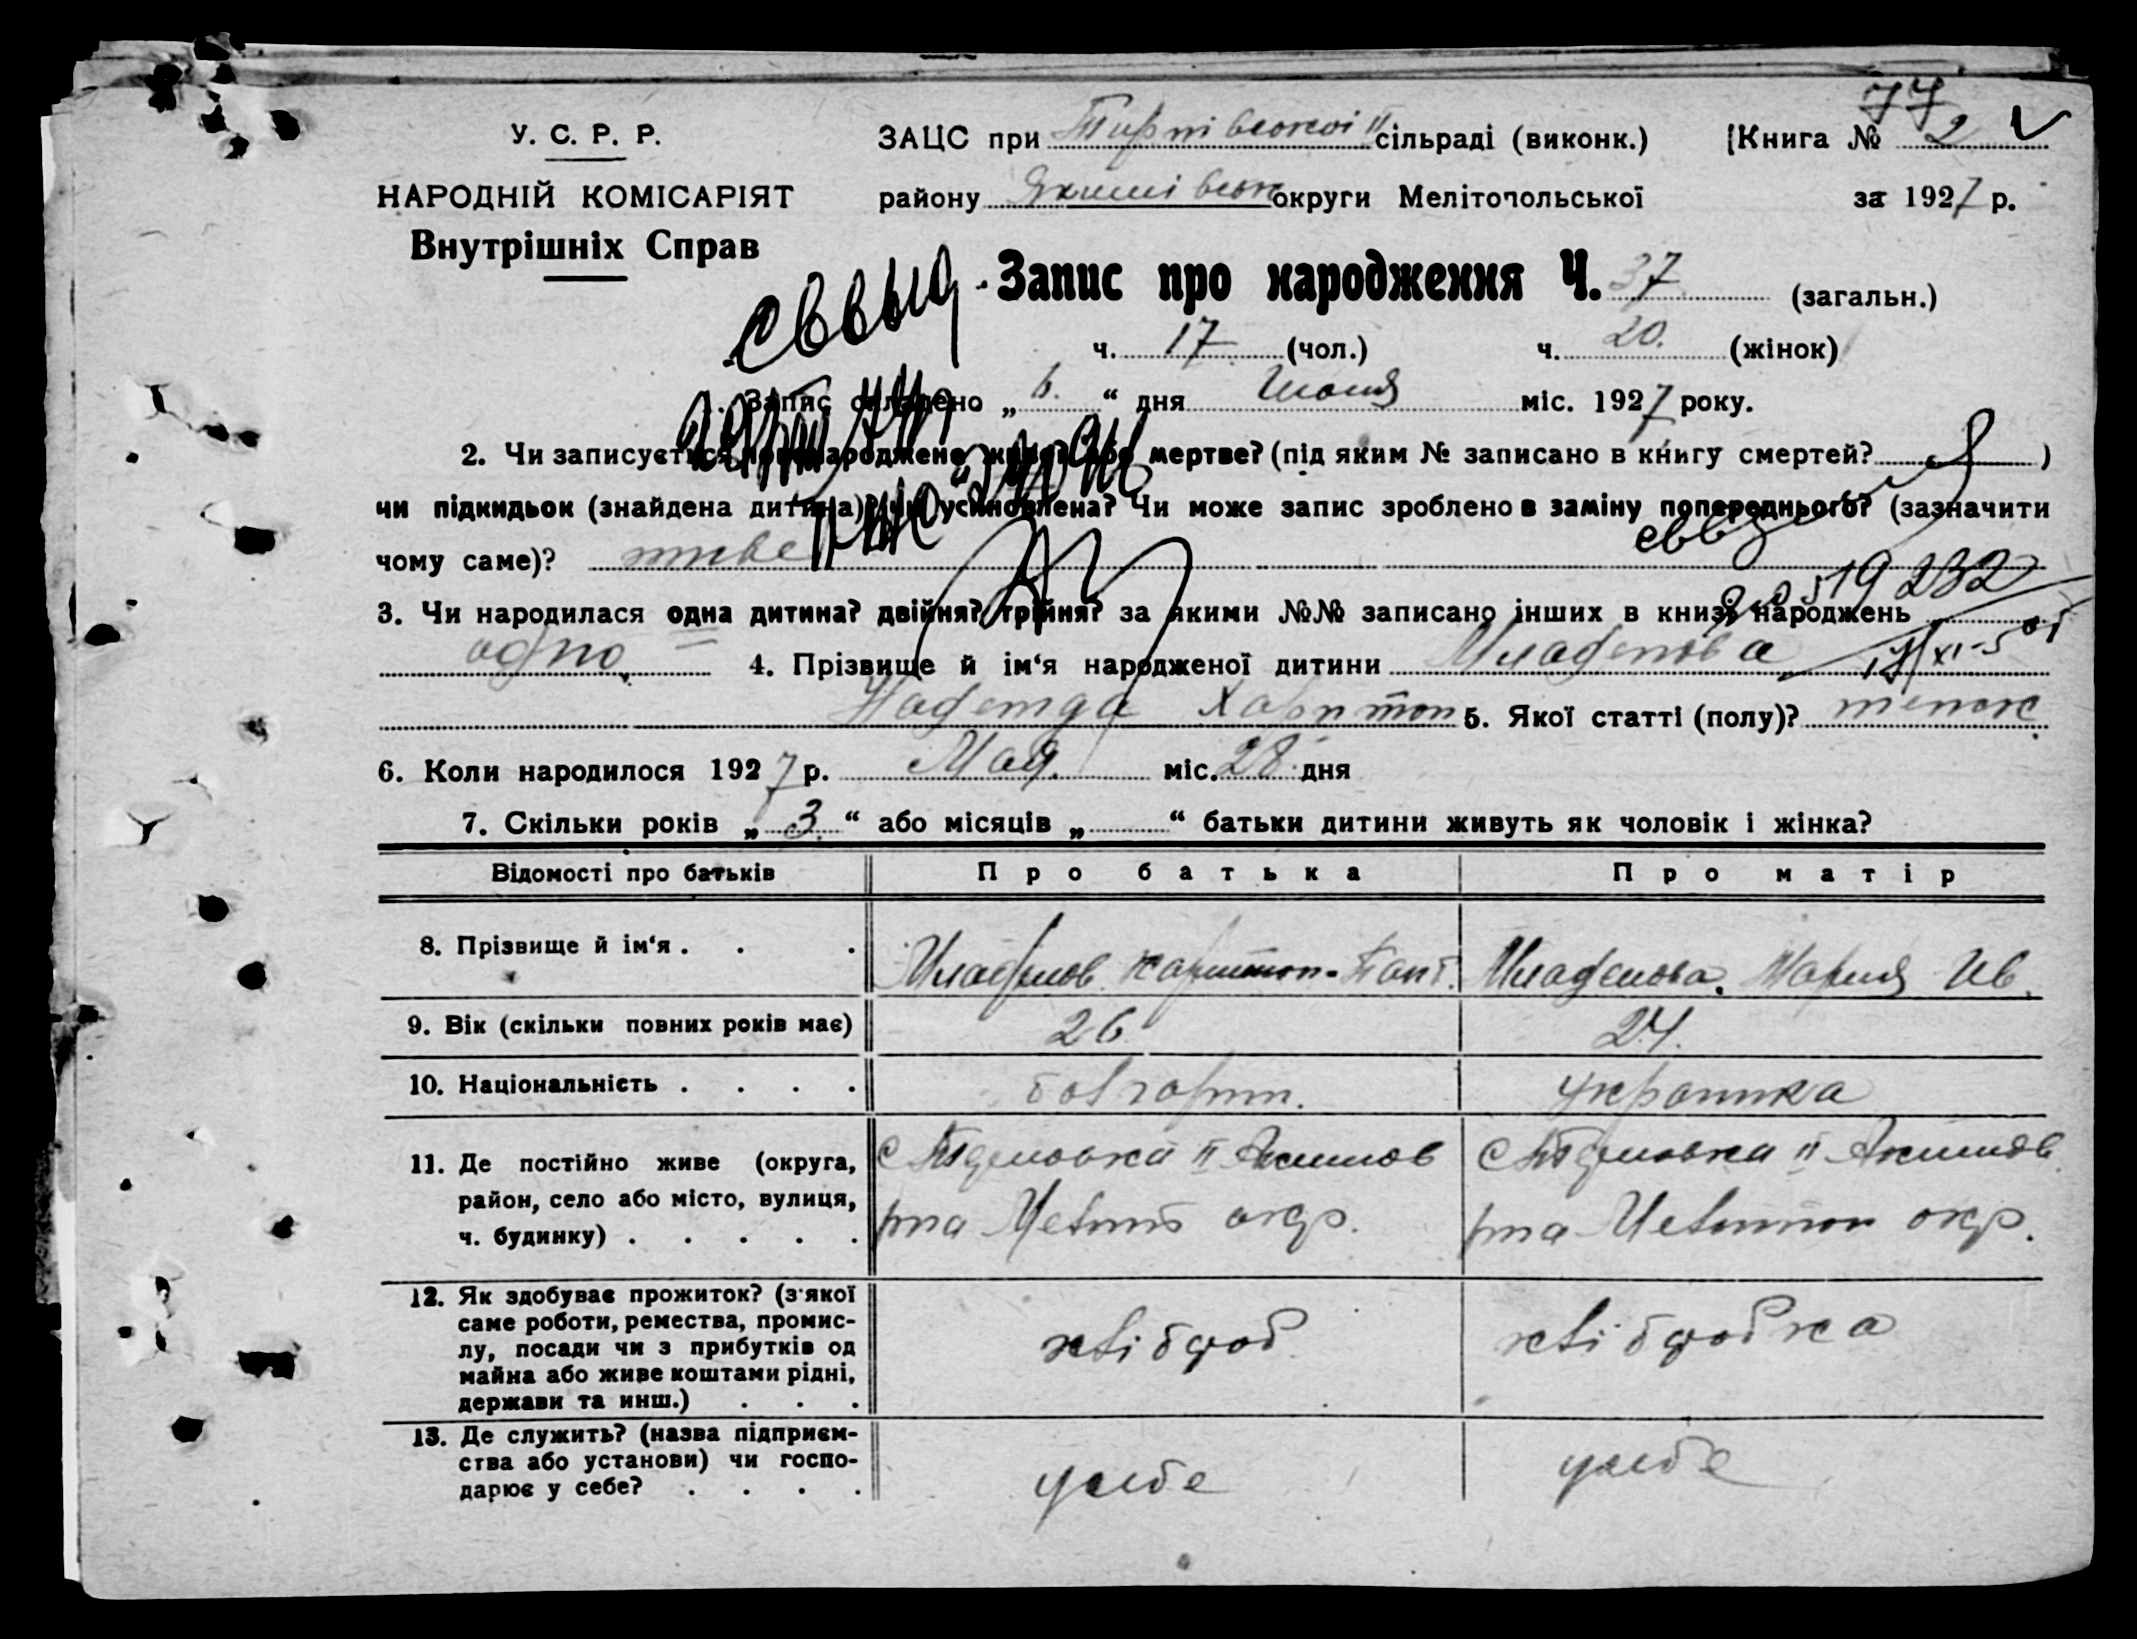 77
У. С. Р. Р. ЗАЦС при Тирпівської II сільраді (виконк.) [Книга № 2
НАРОДНІЙ КОМІСАРІЯТ району Якимівськ округи Мелітопольської за 1927 р.
Внутрішніх Справ
Запис про народження Ч. 37 (загальн.)
ч. 17 (чол.) ч. 20. (жінок)
1. Запис складено „ 6. “ дня Июня міс. 1927 року.
2. Чи записується новонароджене живе? або мертве? (під яким № записано в книгу смертей? )
чи підкидьок (знайдена дитина)? чи усиновлена? Чи може запис зроблено в заміну попереднього? (зазначити
чому саме)? живе
3. Чи народилася одна дитина? двійня? трійня? за якими №№ записано інших в книзі народжень
519232
одно 4. Прізвище й ім‘я народженої дитини Младенова
Надежда Харитон 5. Якої статті (полу)? женск
6. Коли народилося 1927 р. Мая. міс. 28 дня
7. Скільки років „ 3. “ або місяців „ “ батьки дитини живуть як чоловік і жінка?
Відомості про батьків Про батька Про матір
8. Прізвище й ім‘я . . . Младенов Харитон Пант. Младенова Мария Ив.
9. Вік (скільки повних років має) 26 24.
10. Національність . . . . болгарин. украинка
11. Де постійно живе (округа, Акимов Акимов
район, село або місто, вулиця, р-на Мелит окр. р-на Мелитоп окр.
ч. будинку) . . . . .
12. Як здобуває прожиток? (з'якої
саме роботи, ремества, промис-
лу, посади чи з прибутків од хлібороб хлібороб ка
майна або живе коштами рідні,
держави та инш.) . . .
13. Де служить? (назва підприєм-
ства або установи) чи госпо- у себе у себе
дарює у себе? . . . .